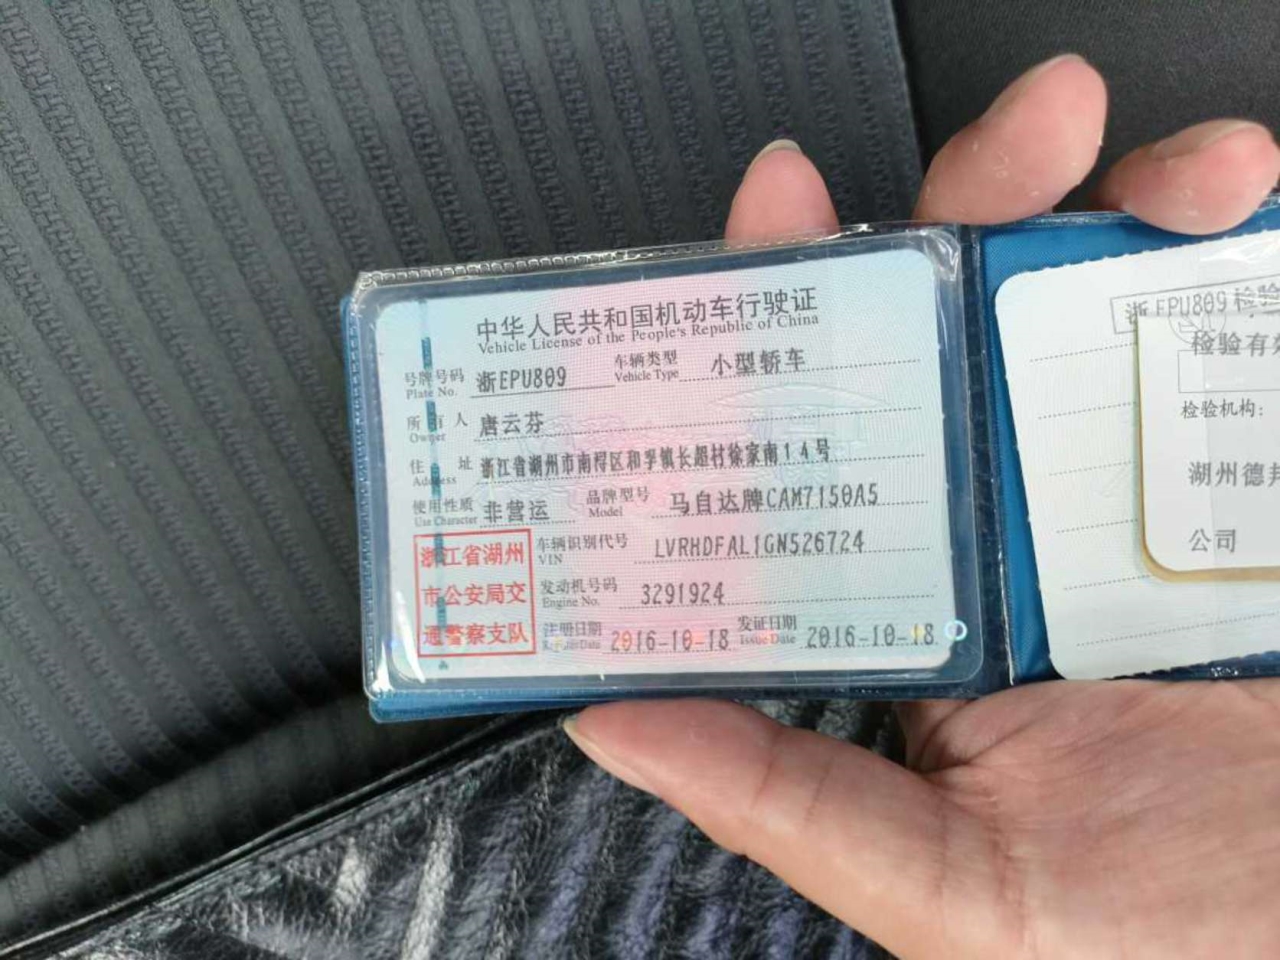 中华人民共和国机动车行驶证
Vehicle License of the People's Republic of China
号牌号码 浙EPU809 车辆类型 小型轿车
Plate No. Vehicle Type
所有人 唐云芬
Owner
住址 浙江省湖州市南浔区和孚镇长超村徐家南14号
Address
使用性质 非营运 品牌型号 马自达牌CAM7150A5
Use Character Model
浙江省湖州
市公安局交
通警察支队
车辆识别代号 LVRHDFAL1GN526724
VIN
发动机号码 3291924
Engine No.
注册日期 2016-10-18 发证日期 2016-10-18
Register Date Issue Date
浙EPU809检验
检验有效
检验机构:
湖州德邦
公司